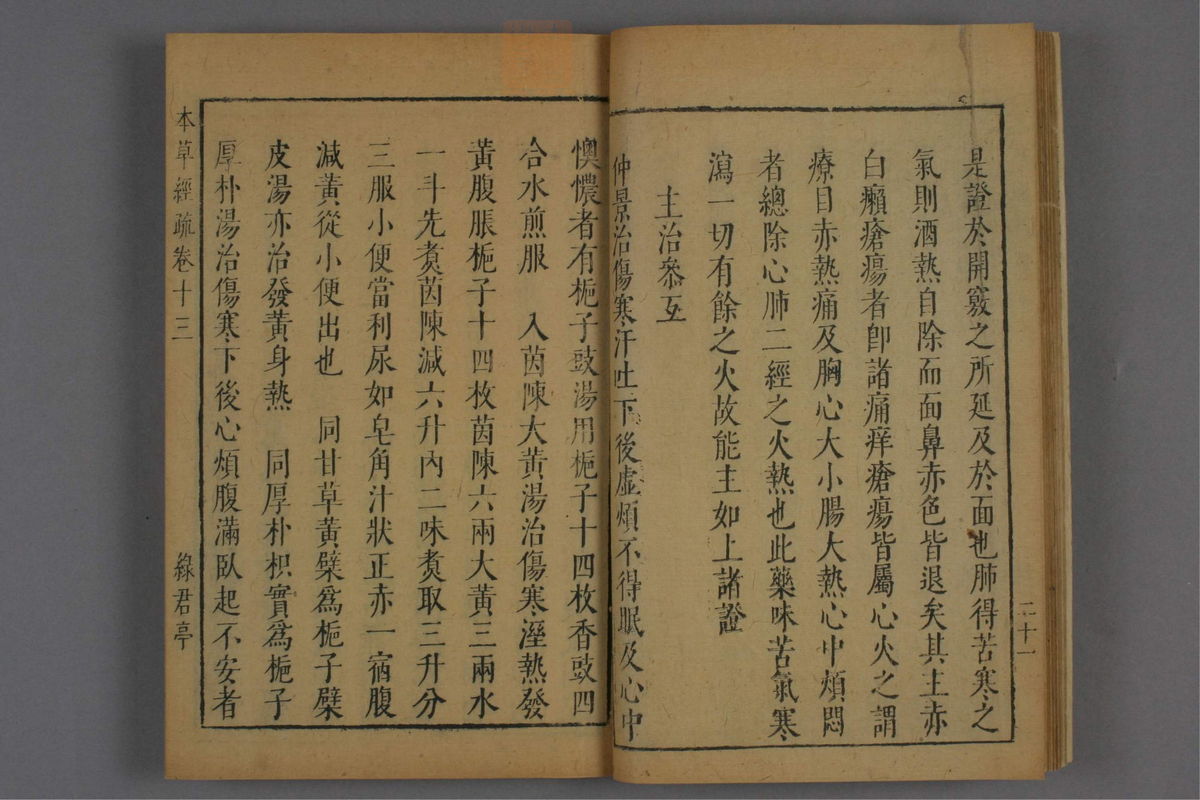 二十一
是證於開竅之所延及於面也肺得苦寒之
氣則酒熱自除而面鼻赤色皆退矣其主赤
白癩瘡瘍者卽諸痛痒瘡瘍皆屬心火之謂
療目赤熱痛及胸心大小腸大熱心中煩悶
者總除心肺二經之火熱也此藥味苦氣寒
瀉一切有餘之火故能主如上諸證
主治參互
仲景治傷寒汗吐下後虛煩不得眠及心中
懊憹者有梔子豉湯用梔子十四枚香豉四
合水煎服 入茵陳大黃湯治傷寒溼熱發
黃腹脹梔子十四枚茵陳六兩大黃三兩水
一斗先煑茵陳減六升內二味煑取三升分
三服小便當利尿如皂角汁狀正赤一宿腹
減黃從小便出也 同甘草黃蘗爲梔子蘗
皮湯亦治發黃身熱 同厚朴枳實爲梔子
厚朴湯治傷寒下後心煩腹滿臥起不安者
本草經疏卷十三 綠君亭